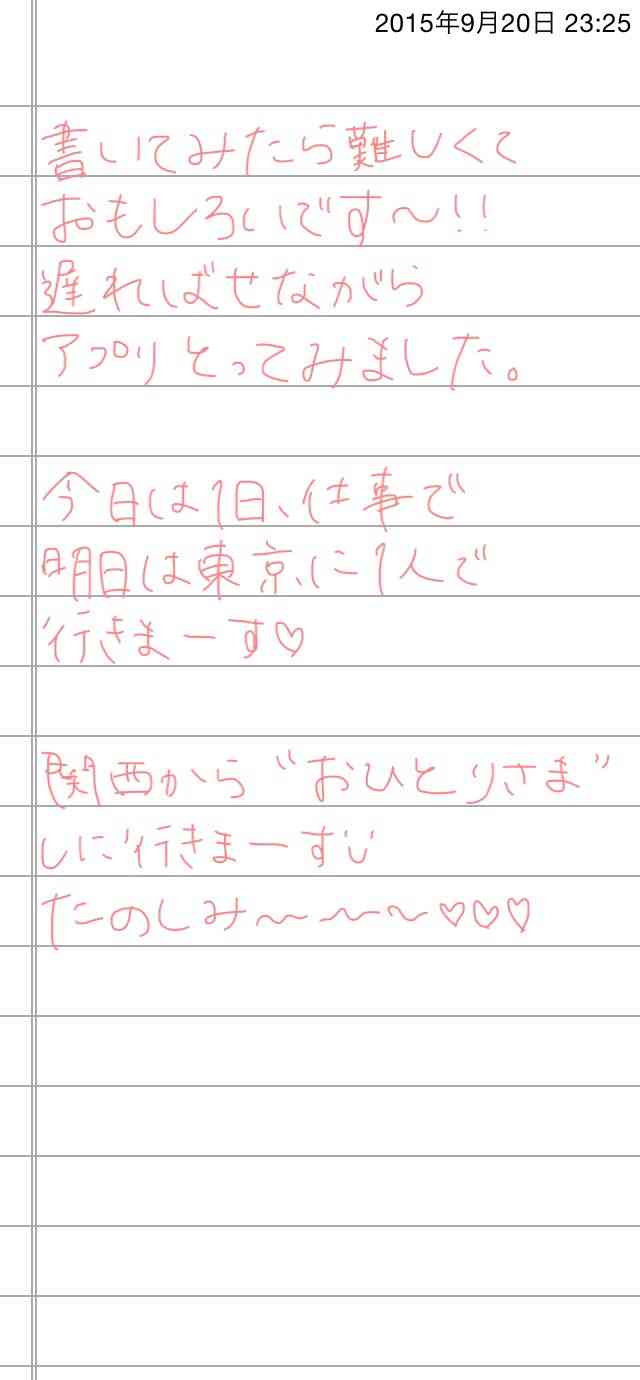 2015年9月20日 23:25
書いてみたら難しくて
おもしろいです〜!!
遅ればせながら
アプリとってみました。
今日は1日、仕事で
明日は東京に1人で
行きまーす♡
関西から“おひとりさま”
しに行きまーす
たのしみ〜〜〜♡♡♡